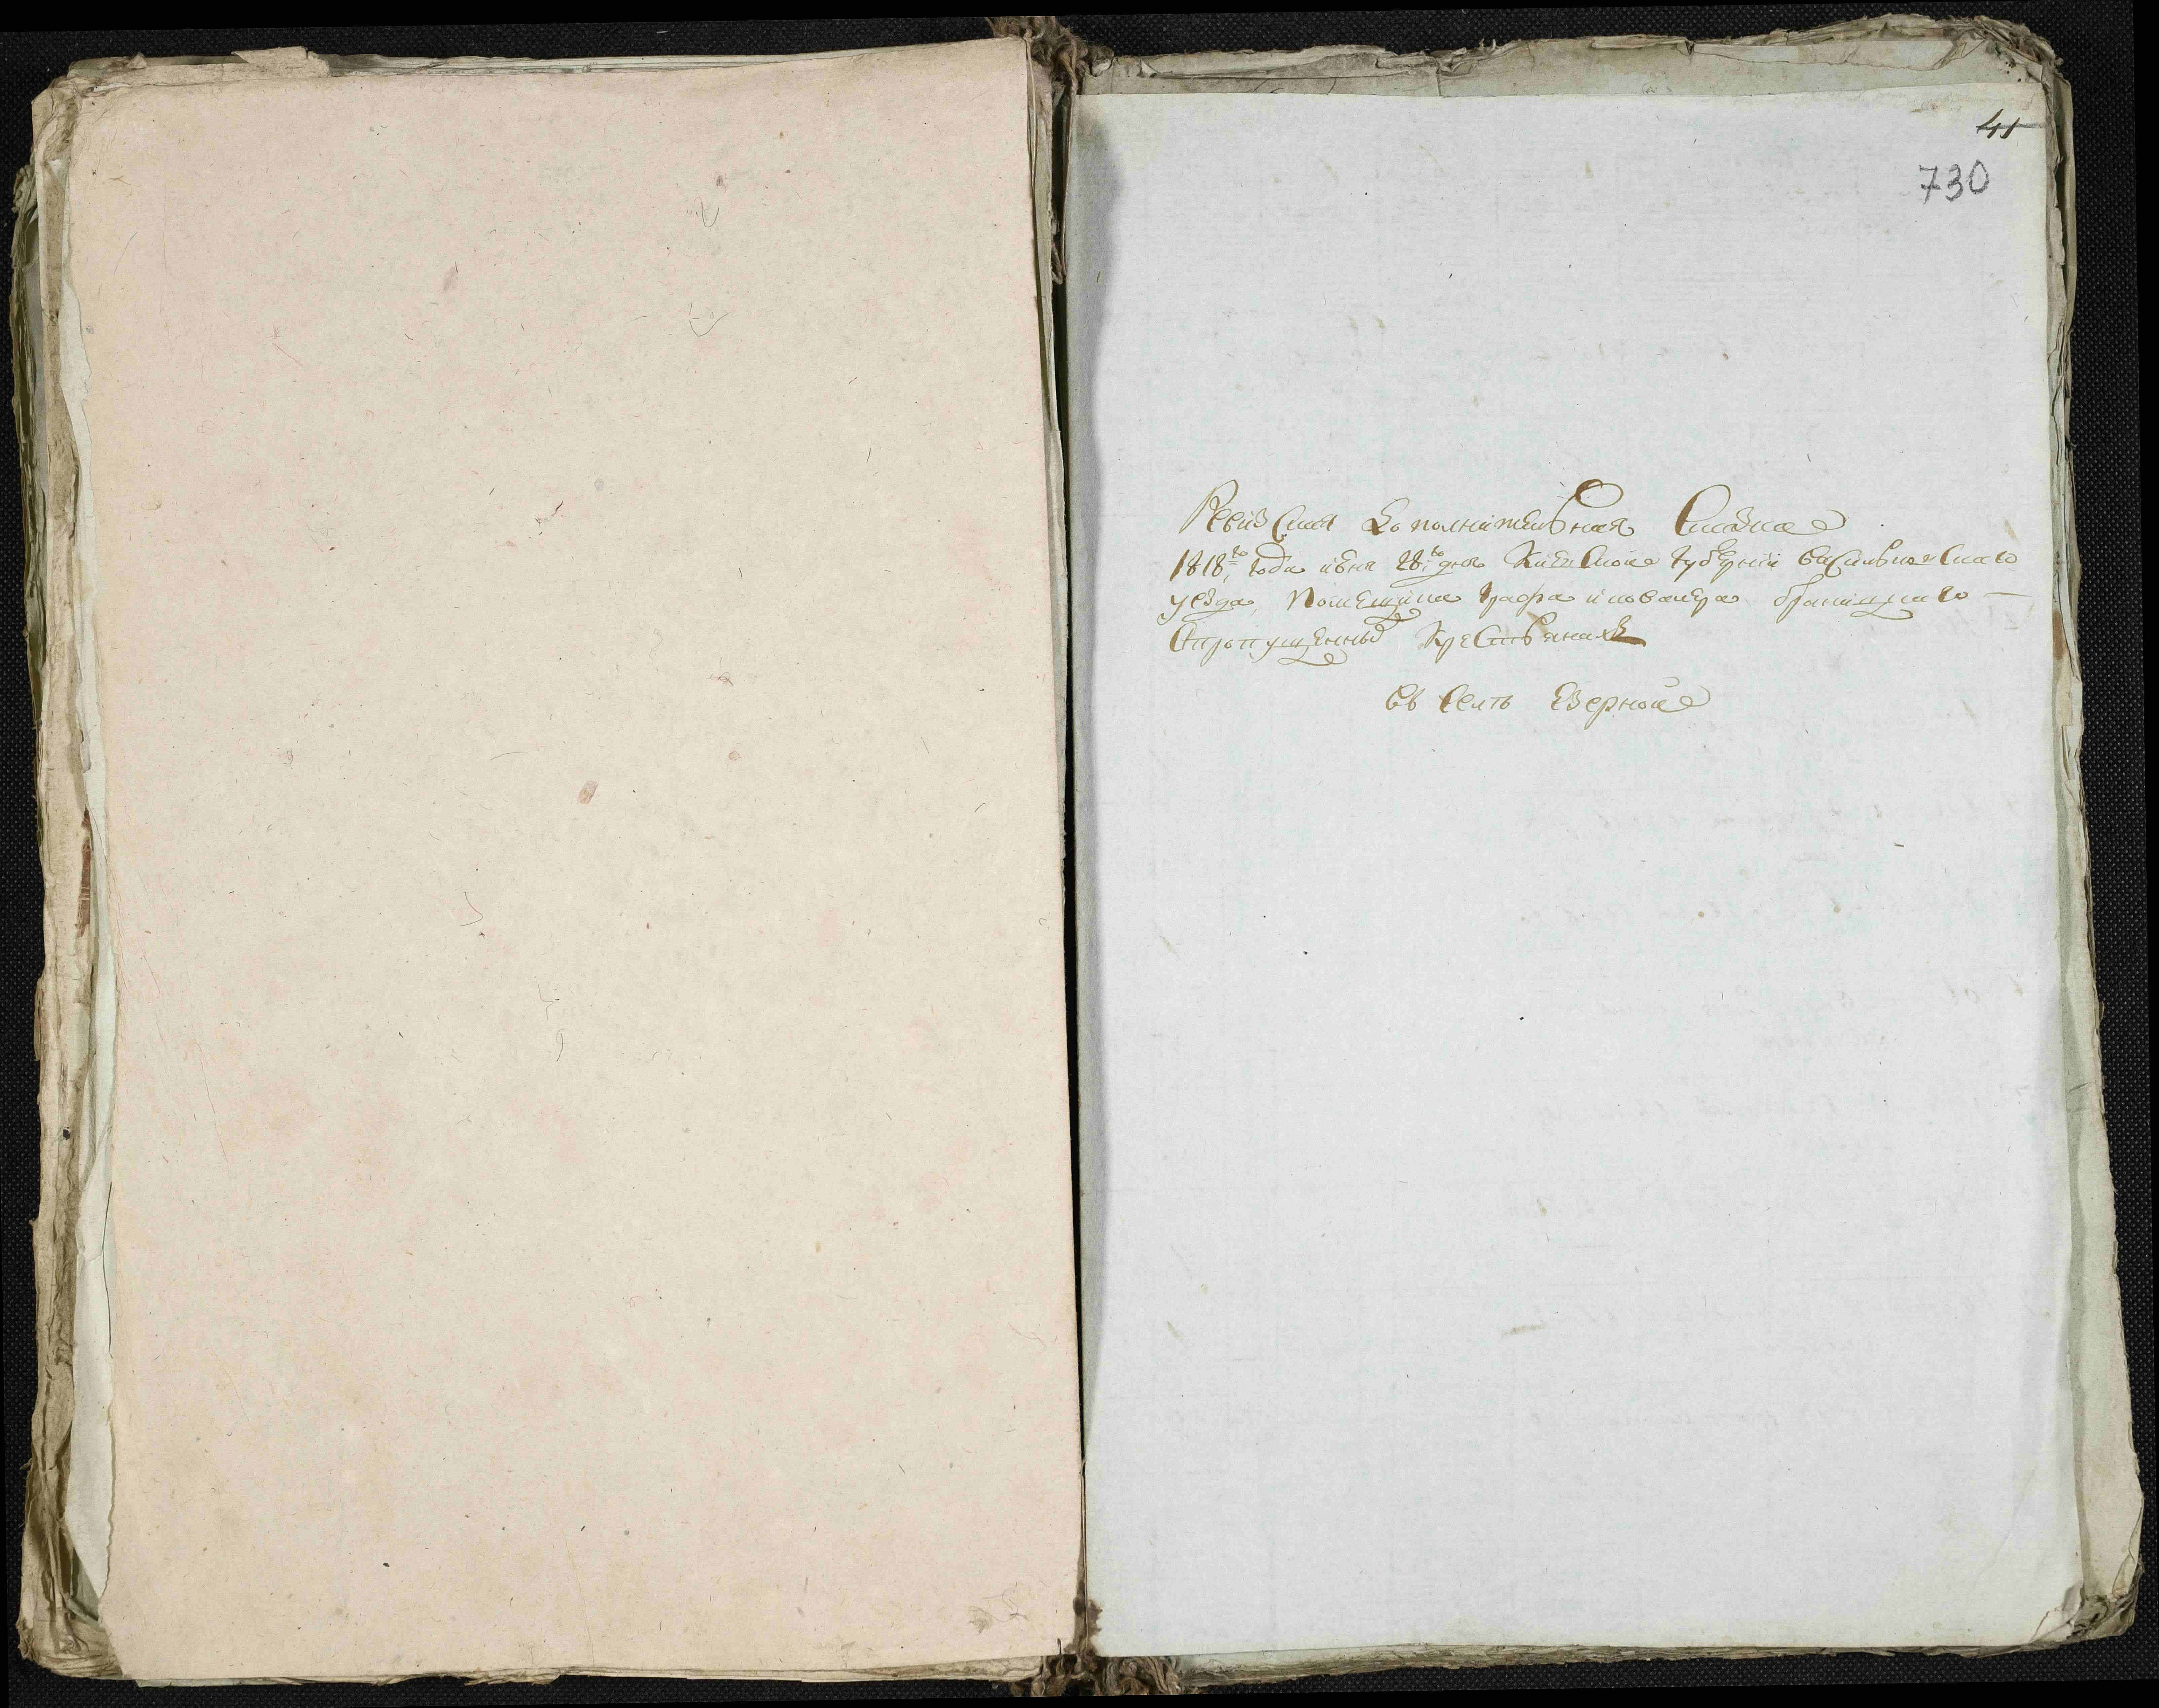 41
730
Ревизская дополнительная Сказка
1818го года июня 28го дня Киевской губернии васильковскаго
уезда, Помещика графа и кавалера браницкаго —
Опропущенных Крестьянах
въ селѣ Езерной